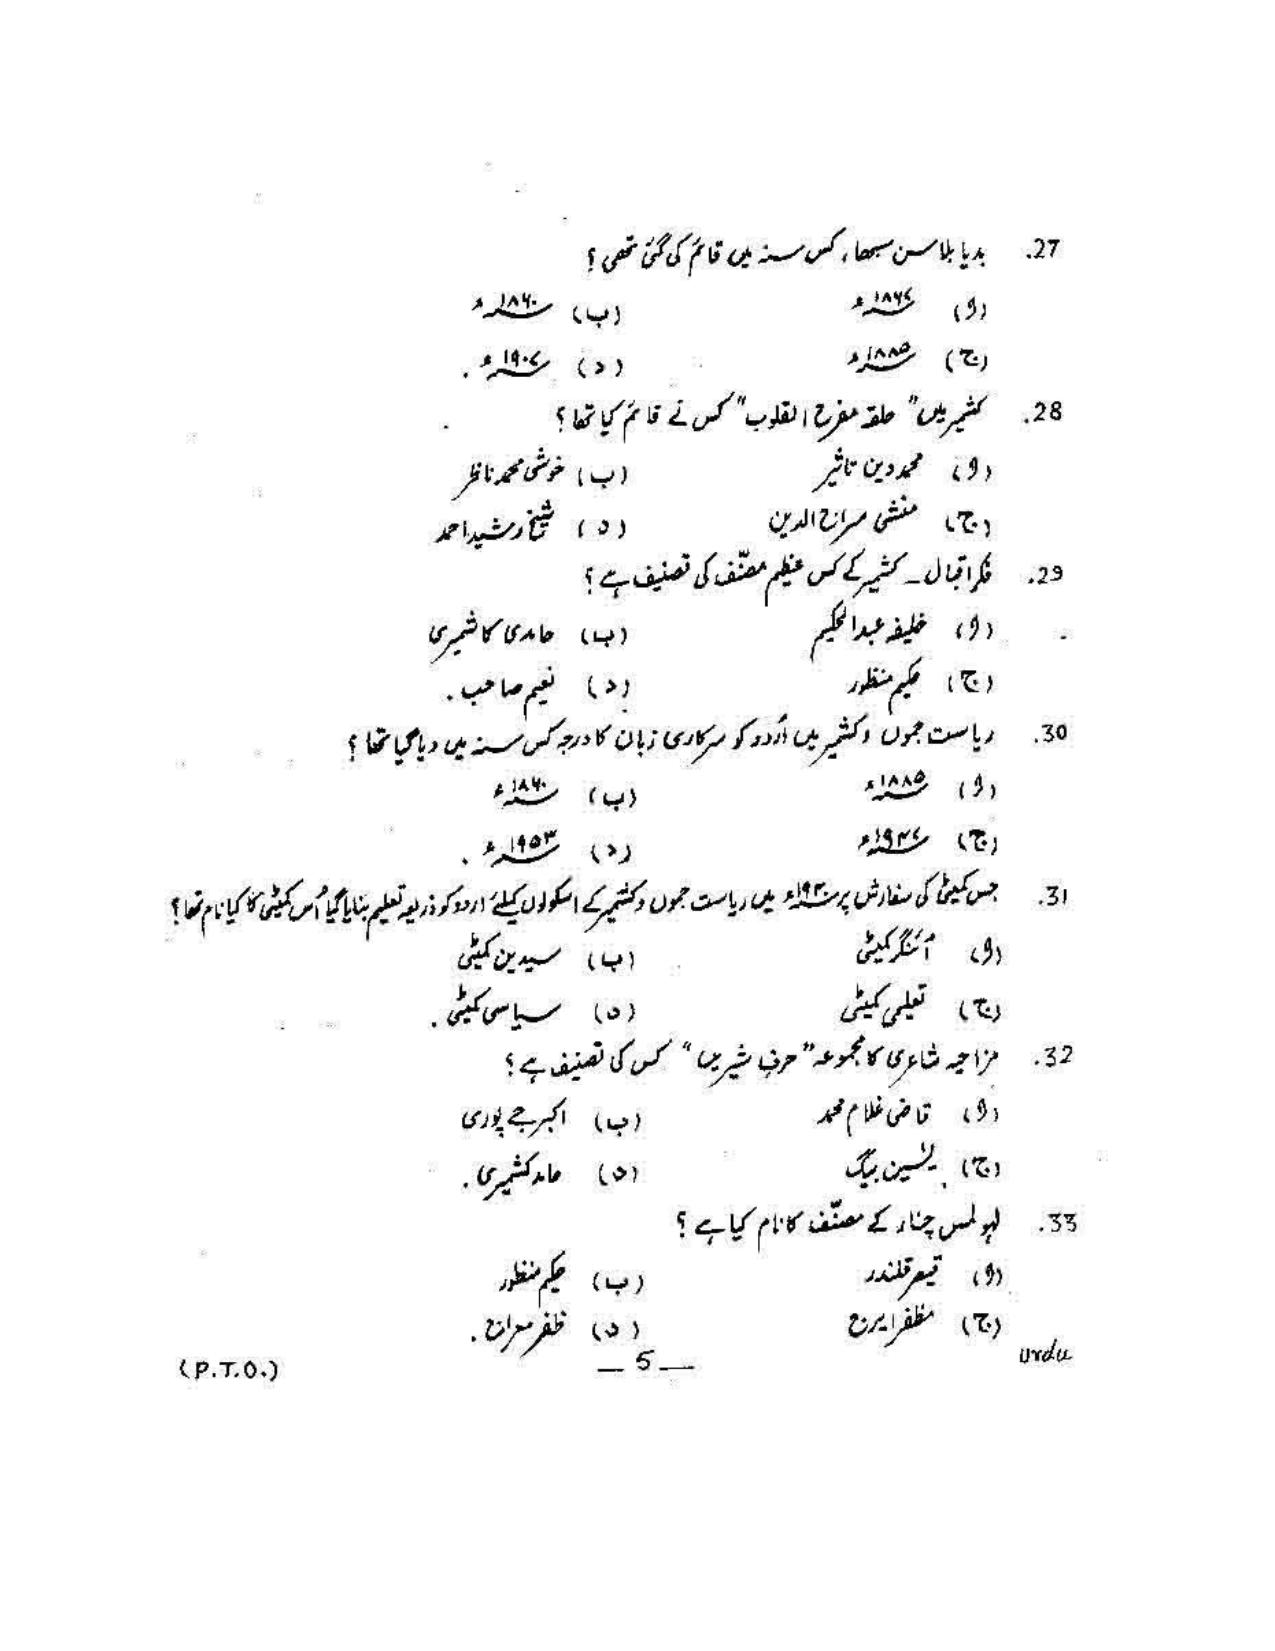 27. بدیا بلاسن سبھا، کس سنہ میں قائم کی گئی تھی ؟
(ا) ۱۸۶۷ء (ب) ۱۸۶۰ء
(ج) ۱۸۸۵ء (د) ۱۹۰۷ء .
28. کشمیر میں "حلقہ مفرح القلوب" کس نے قائم کیا تھا ؟
(ا) محمد دین تاثیر (ب) خوشی محمد ناظر
(ج) منشی سراج الدین (د) شیخ رشید احمد
29. فکر اقبال ـ کشمیر کے کس عظیم مصنّف کی تصنیف ہے ؟
(ا) خلیفہ عبدالحکیم (ب) حامدی کاشمیری
(ج) حکیم منظور (د) نعیم صاحب .
30. ریاست جموں و کشمیر میں اُردو کو سرکاری زبان کا درجہ کس سنہ میں دیا گیا تھا ؟
(ا) ۱۸۸۵ء (ب) ۱۸۶۰ء
(ج) ۱۹۴۷ء (د) ۱۹۵۳ء .
31. جس کمیٹی کی سفارش پر ۱۹۴۰ء میں ریاست جموں و کشمیر کے اسکولوں کیلئے اردو کو ذریعہ تعلیم بنایا گیا اُس کمیٹی کا کیا نام تھا ؟
(ا) آئنگر کمیٹی (ب) سیدین کمیٹی
(ج) تعلیمی کمیٹی (د) سیاسی کمیٹی .
32. مزاحیہ شاعری کا مجموعہ "حرفِ شیریں" کس کی تصنیف ہے ؟
(ا) قاضی غلام محمد (ب) اکبر جے پوری
(ج) یٰسین بیگ (د) حامد کشمیری .
33. لہو لمس چنار کے مصنّف کا نام کیا ہے ؟
(ا) قیصر قلندر (ب) حکیم منظور
(ج) مظفر ایرج (د) ظفر معراج .
urdu — 5 — (P.T.O.)